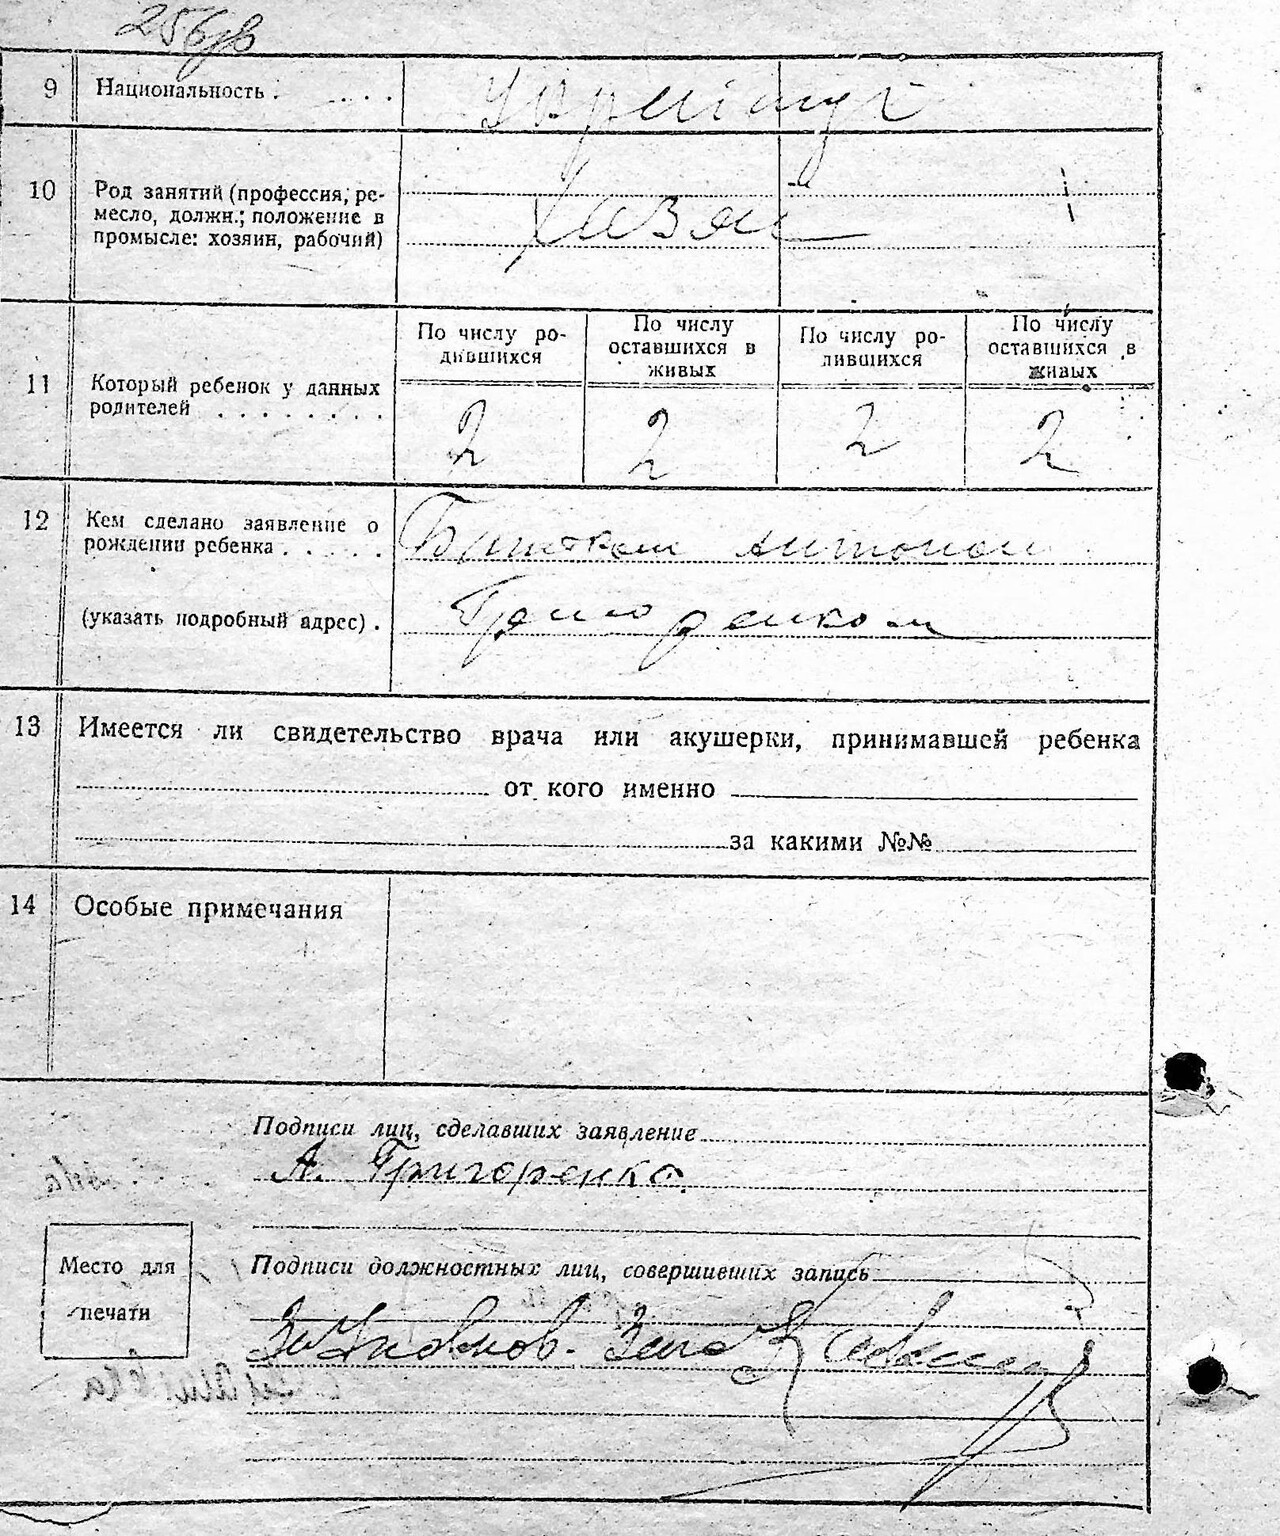 9 Национальность . . . . .
Украинцы
10 Род занятий (профессия, ре-
месло, должн.; положение в
промысле: хозяин, рабочий)
Хазяи
По числу ро-
дившихся
По числу
оставшихся в
живых
По числу ро-
дившихся
По числу
оставшихся в
живых
11 Который ребенок у данных
родителей . . . . . . . .
2 2 2 2
12 Кем сделано заявление о
рождении ребенка . . . . .
Антоном
(указать подробный адрес) .
Григоренком
13 Имеется ли свидетельство врача или акушерки, принимавшей ребенка
от кого именно
за какими №№
14 Особые примечания
Подписи лиц, сделавших заявление
А. Григоренко.
Место для
печати
Подписи должностных лиц, совершивших запись